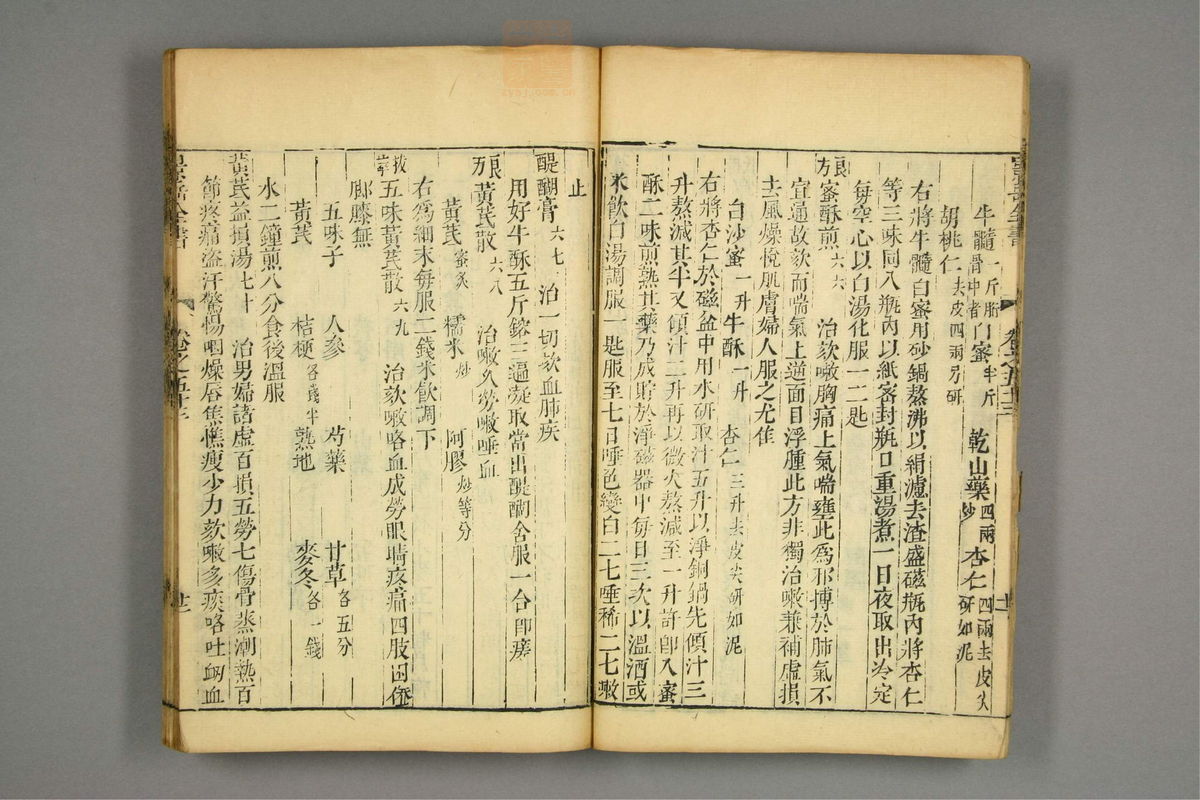 牛髓一斤骨中者 白蜜半斤 乾山藥四兩炒 杏仁四兩去皮尖研如泥
胡桃仁去皮四兩另研
右將牛髓白蜜用砂鍋熬沸以絹濾去渣盛磁瓶內將杏仁
等三味同入瓶內以紙密封瓶口重湯煮一日夜取出冷定
每空心以白湯化服一二匙
良方蜜酥煎六六 治欬嗽胸痛上氣喘壅此爲邪搏於肺氣不
宣通故欬而喘氣上逆面目浮腫此方非獨治嗽兼補虛損
去風燥悅肌膚婦人服之尤佳
白沙蜜一升 牛酥一升 杏仁三升去皮尖研如泥
右將杏仁於磁盆中用水研取汁五升以淨銅鍋先傾汁三
升熬減其半又傾汁二升再以微火熬減至一升許卽入蜜
酥二味煎熟其藥乃成貯於淨磁器中每日三次以溫酒或
米飲白湯調服一匙服至七日唾色變白二七唾稀二七嗽
止
醍醐膏六七 治一切欬血肺疾
用好牛酥五斤鎔三遍凝取當出醍醐含服一合卽瘥
良方黃芪散六八 治嗽久勞嗽唾血
黃芪蜜炙 糯米炒 阿膠炒等分
右爲細末每服二錢米飲調下
拔萃五味黃芪散六九 治欬嗽咯血成勞眼睛疼痛四肢困倦
脚膝無
五味子 人參 芍藥 甘草各五分
黃芪 桔梗各錢半 熟地 麥冬各一錢
水二鐘煎八分食後溫服
黃芪益損湯七十 治男婦諸虛百損五勞七傷骨蒸潮熱百
節疼痛盜汗驚惕咽燥唇焦憔瘦少力欬嗽多痰咯吐衂血
卷之五十三